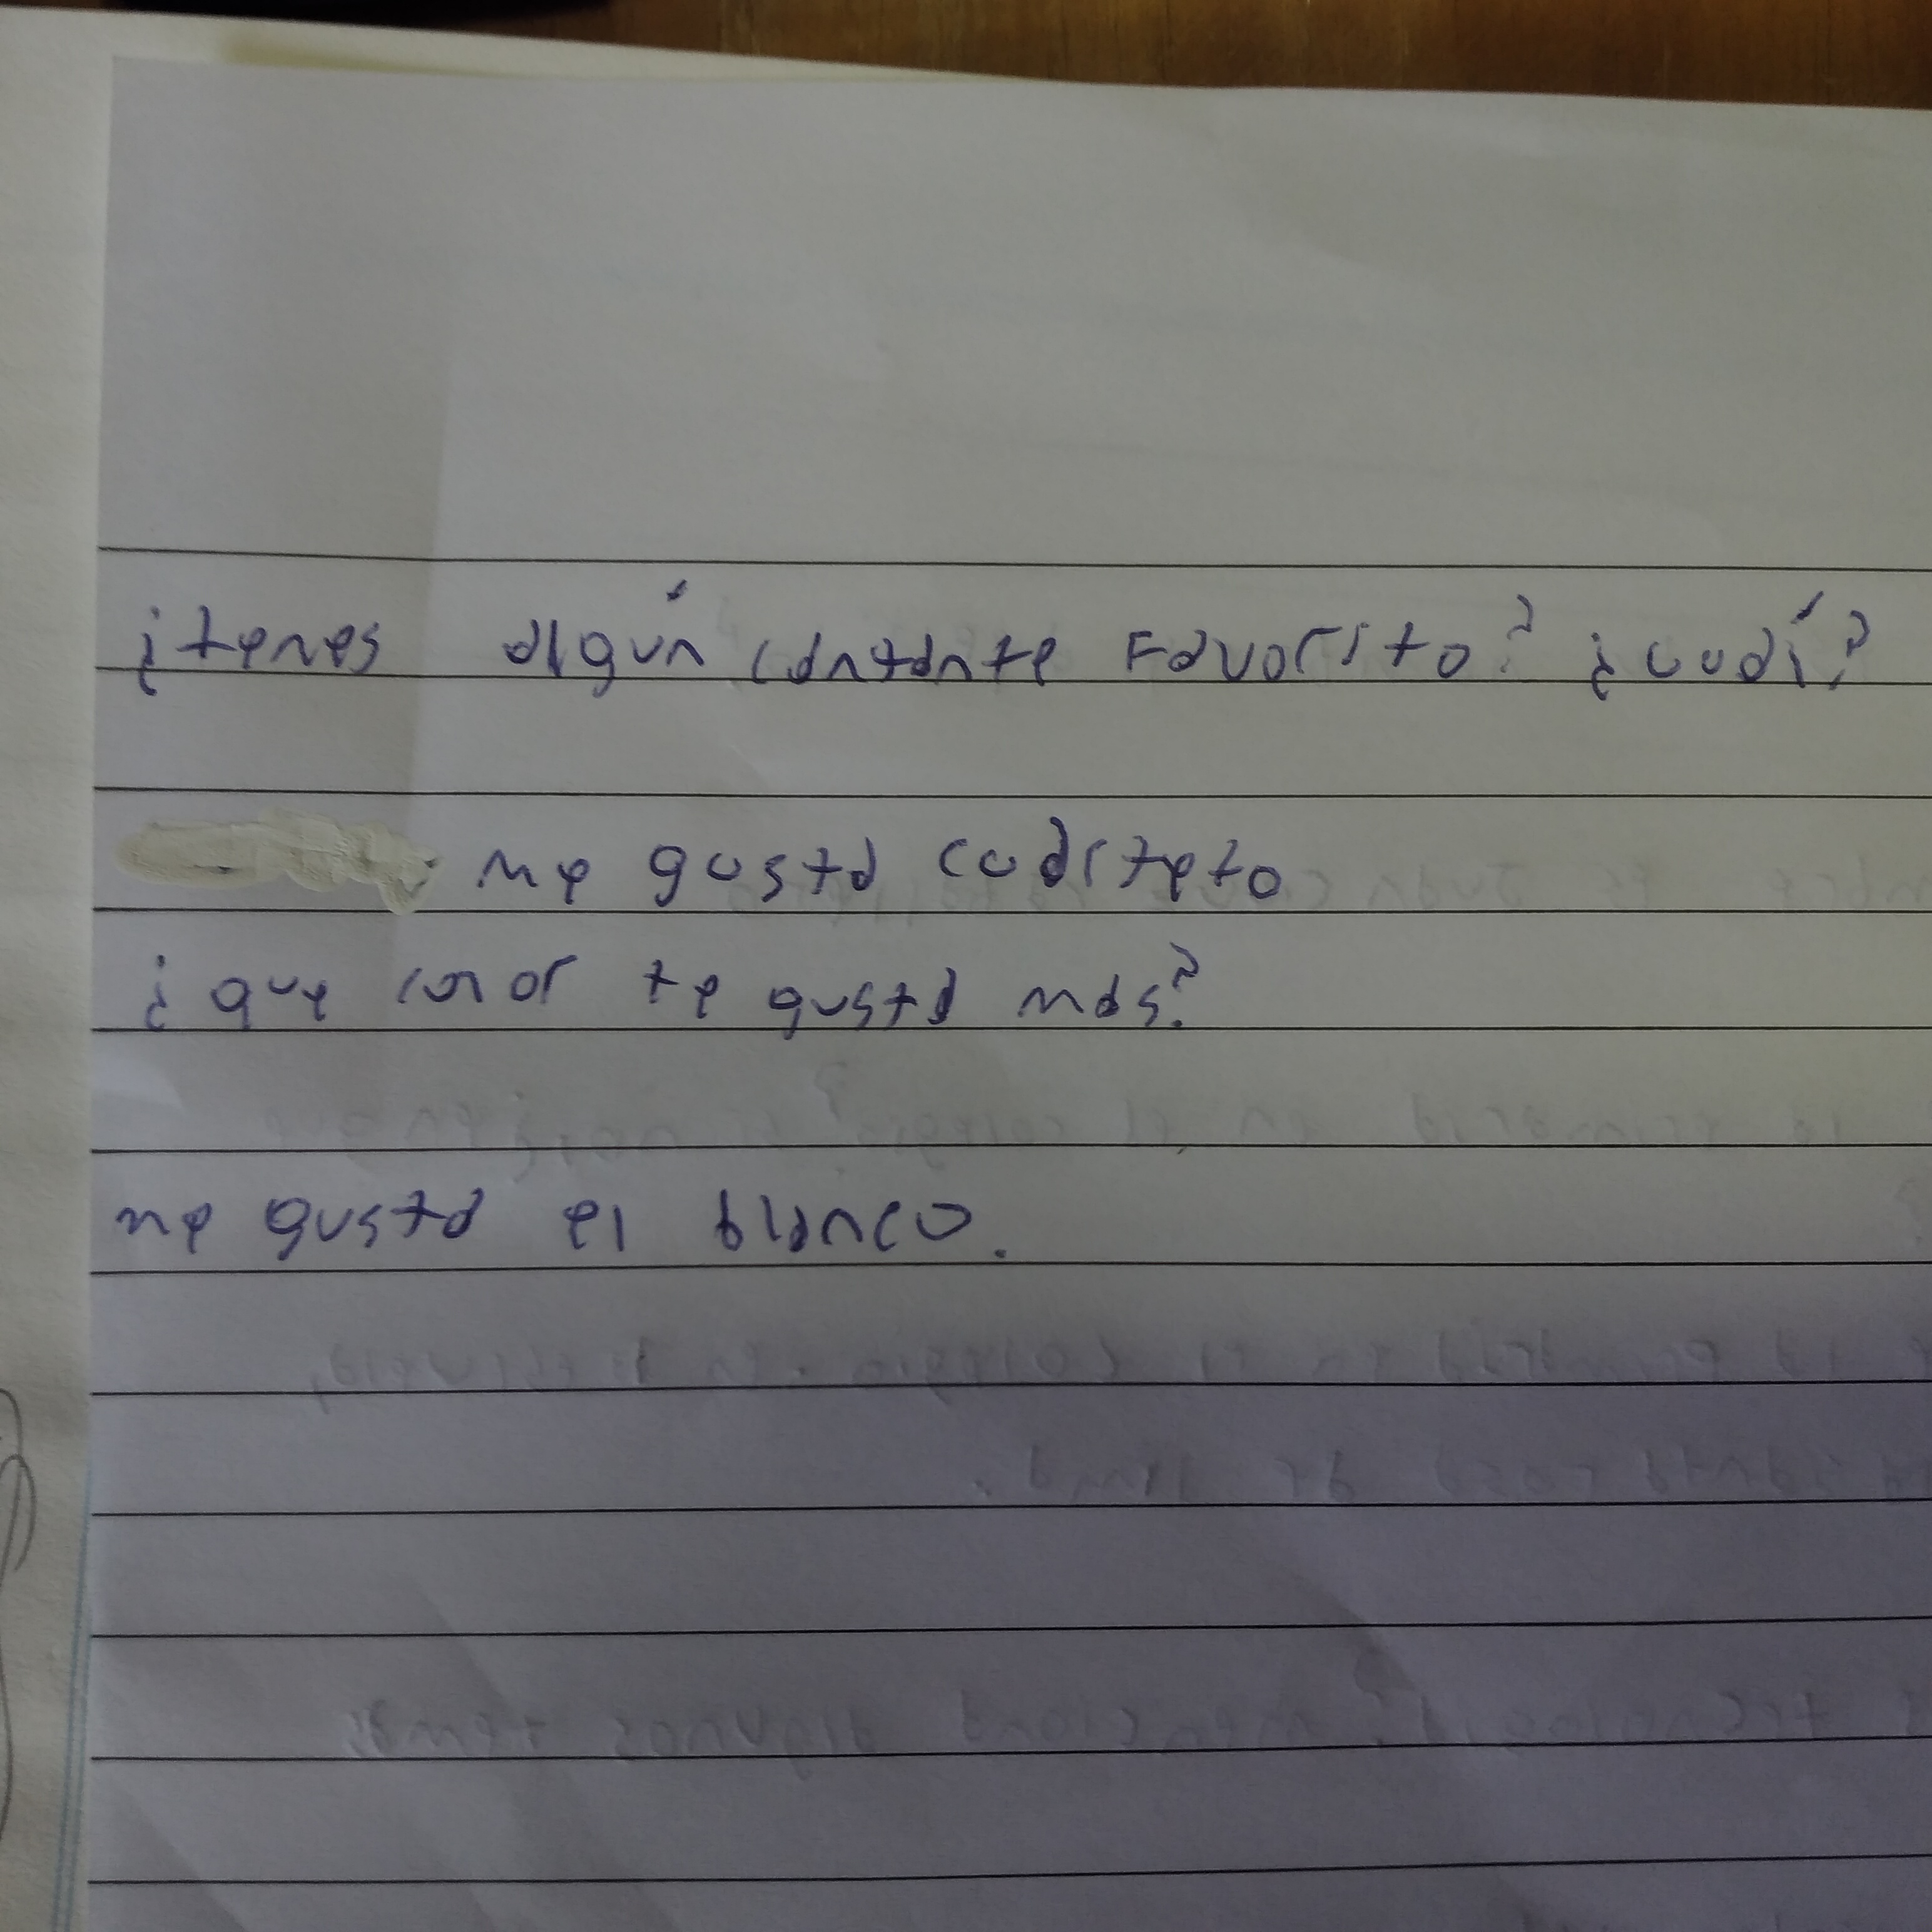 ¿tenes algún cantante Favorito? ¿cuál?
me gusta cuarteto
¿que color te gusta mas?
me gusta el blanco.